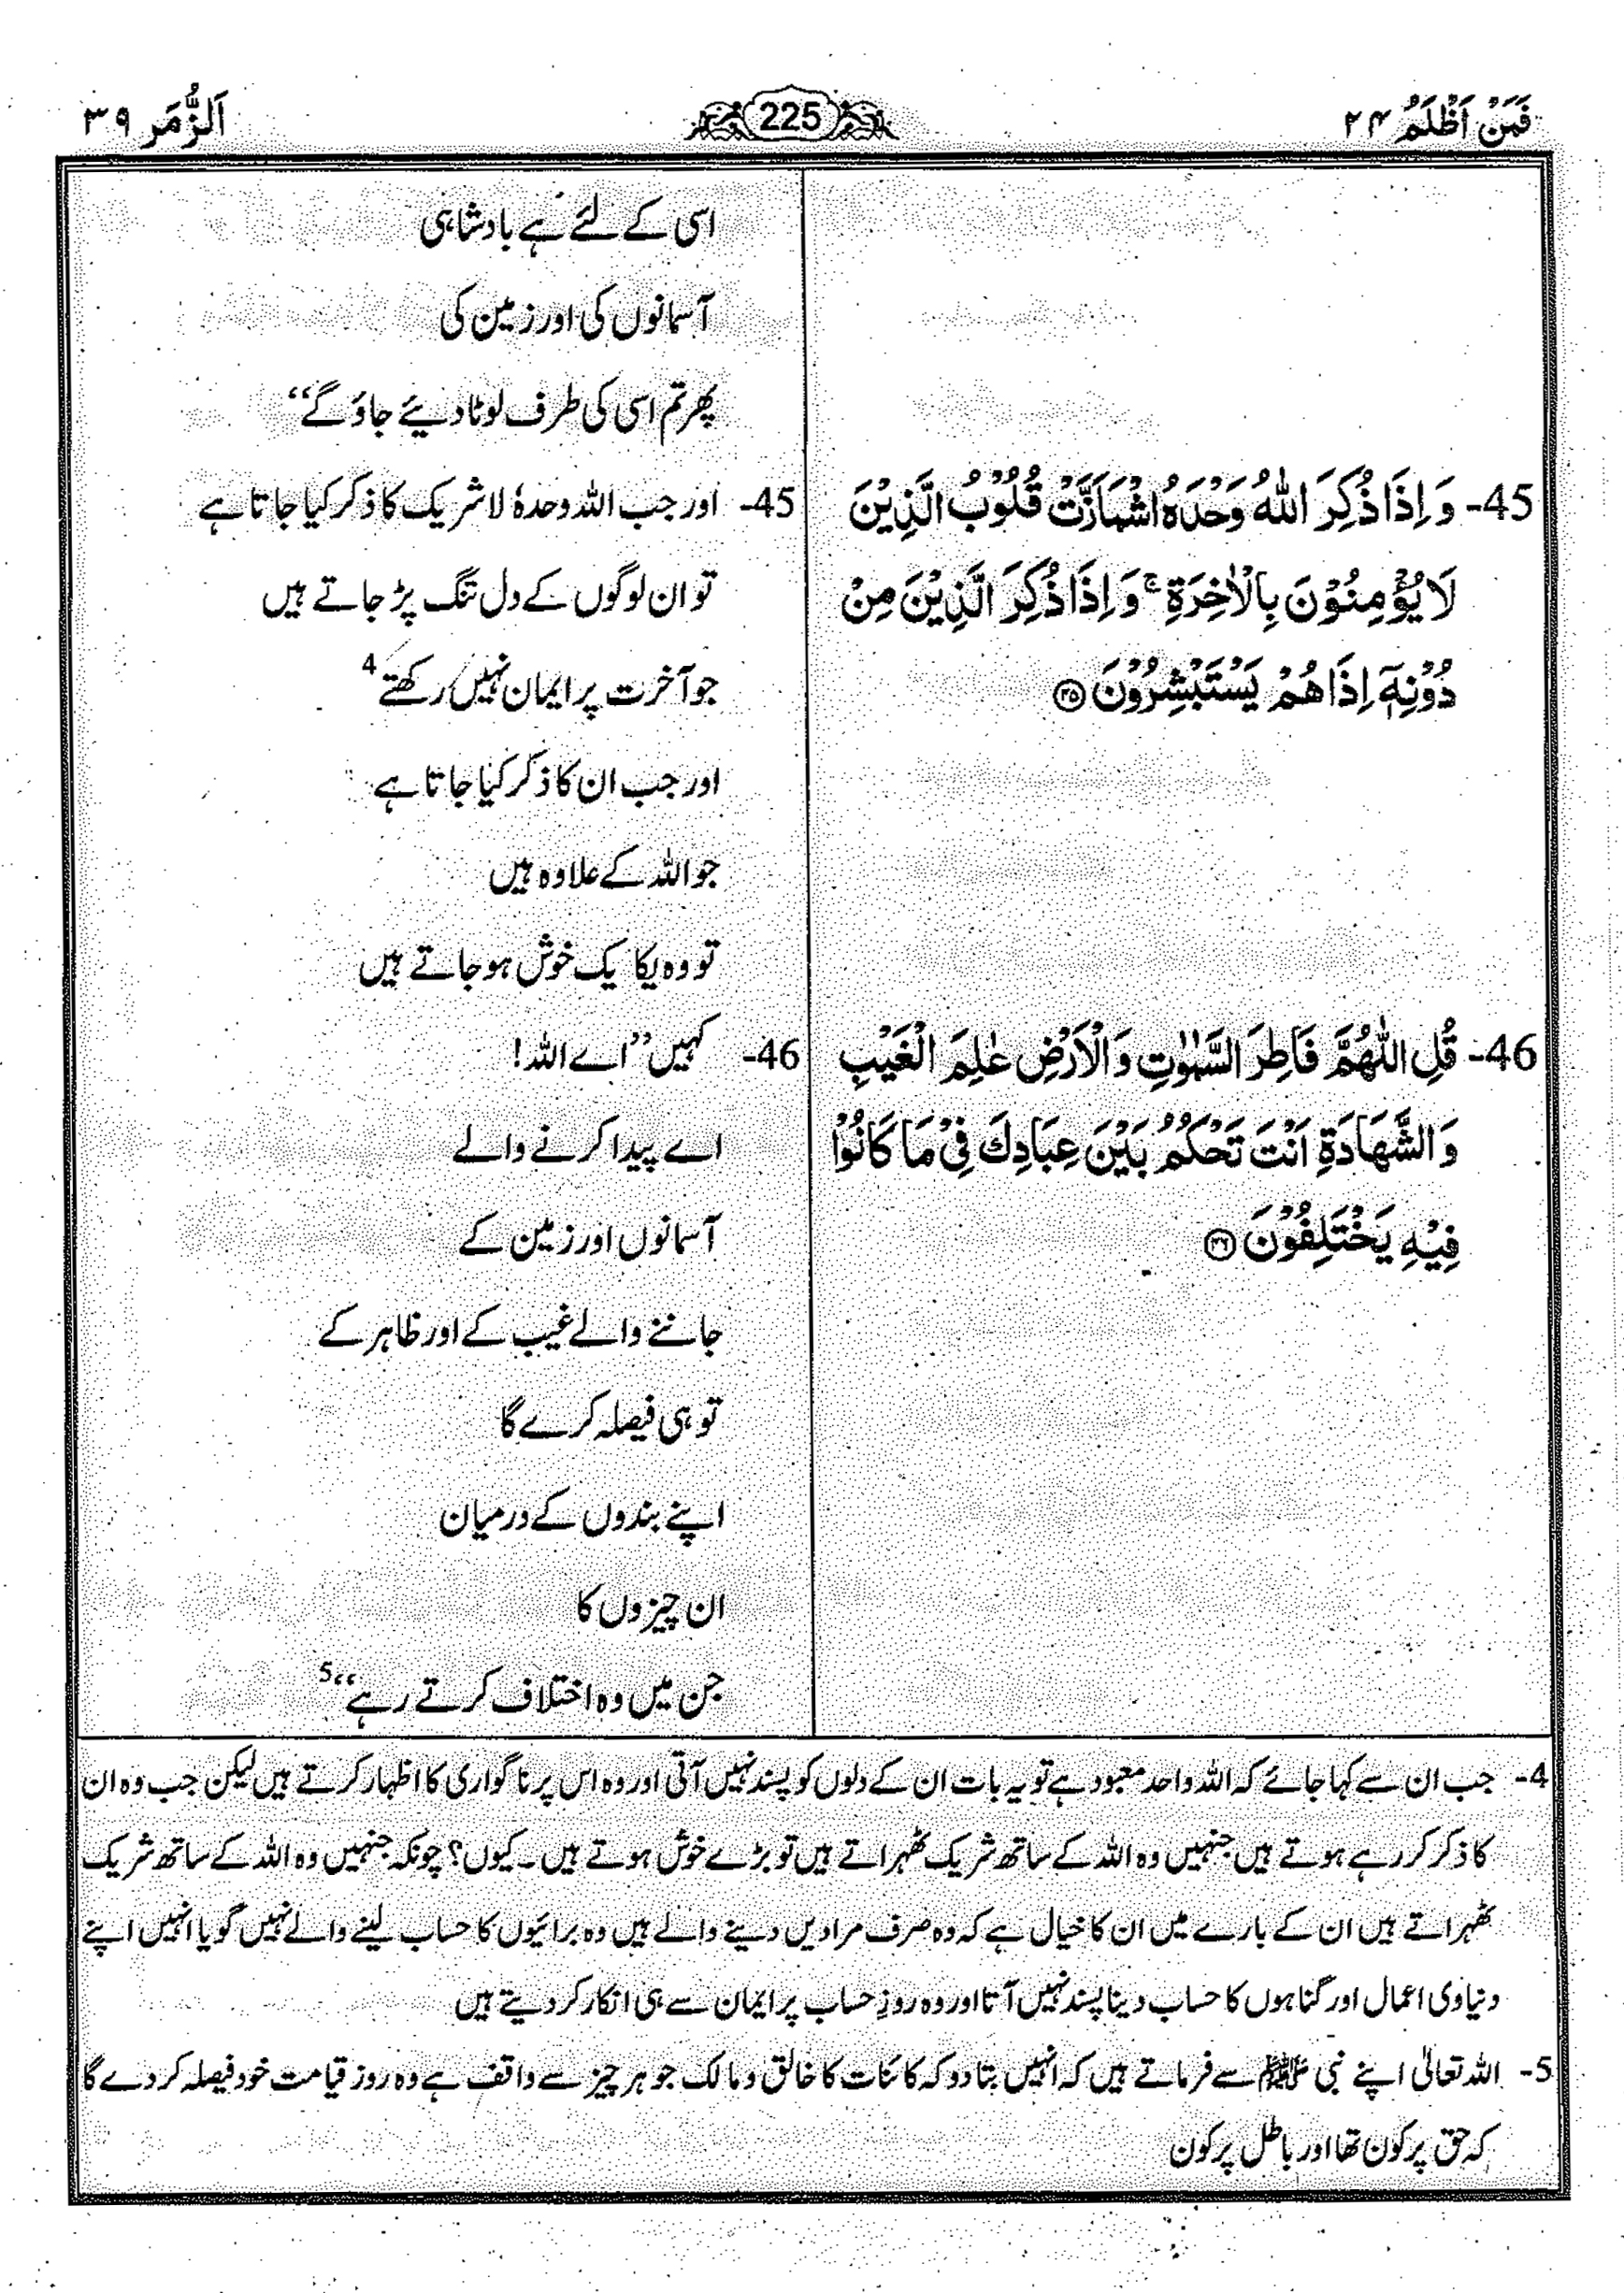 فَمَنْ اَظْلَمُ ۲۴
225
اَلزُّمَر ۳۹
اسی کے لئے ہے بادشاہی
آسمانوں کی اور زمین کی
پھر تم اسی کی طرف لوٹا دیئے جاؤ گے‘‘
45- وَ اِذَا ذُكِرَ اللّٰهُ وَحْدَهُ اشْمَاَزَّتْ قُلُوْبُ الَّذِيْنَ
لَا يُؤْمِنُوْنَ بِالْاٰخِرَةِ ۚ وَ اِذَا ذُكِرَ الَّذِيْنَ مِنْ
دُوْنِهٖۤ اِذَا هُمْ يَسْتَبْشِرُوْنَ ﴿۴۵﴾
45- اور جب اللہ وحدہٗ لا شریک کا ذکر کیا جاتا ہے
تو ان لوگوں کے دل تنگ پڑ جاتے ہیں
جو آخرت پر ایمان نہیں رکھتے 4
اور جب ان کا ذکر کیا جاتا ہے
جو اللہ کے علاوہ ہیں
تو وہ یکا یک خوش ہو جاتے ہیں
46- قُلِ اللّٰهُمَّ فَاطِرَ السَّمٰوٰتِ وَ الْاَرْضِ عٰلِمَ الْغَيْبِ
وَ الشَّهَادَةِ اَنْتَ تَحْكُمُ بَيْنَ عِبَادِكَ فِيْ مَا كَانُوْا
فِيْهِ يَخْتَلِفُوْنَ ﴿۴۶﴾
46- کہیں ’’اے اللہ!
اے پیدا کرنے والے
آسمانوں اور زمین کے
جاننے والے غیب کے اور ظاہر کے
تو ہی فیصلہ کرے گا
اپنے بندوں کے درمیان
ان چیزوں کا
جن میں وہ اختلاف کرتے رہے‘‘ 5
4- جب ان سے کہا جائے کہ اللہ واحد معبود ہے تو یہ بات ان کے دلوں کو پسند نہیں آتی اور وہ اس پر ناگواری کا اظہار کرتے ہیں لیکن جب وہ ان
کا ذکر کر رہے ہوتے ہیں جنہیں وہ اللہ کے ساتھ شریک ٹھہراتے ہیں تو بڑے خوش ہوتے ہیں۔ کیوں؟ چونکہ جنہیں وہ اللہ کے ساتھ شریک
ٹھہراتے ہیں ان کے بارے میں ان کا خیال ہے کہ وہ صرف مرادیں دینے والے ہیں وہ برائیوں کا حساب لینے والے نہیں گویا انہیں اپنے
دنیاوی اعمال اور گناہوں کا حساب دینا پسند نہیں آتا اور وہ روزِ حساب پر ایمان سے ہی انکار کر دیتے ہیں
5- اللہ تعالیٰ اپنے نبی ﷺ سے فرماتے ہیں کہ انہیں بتا دو کہ کائنات کا خالق و مالک جو ہر چیز سے واقف ہے وہ روز قیامت خود فیصلہ کر دے گا
کہ حق پر کون تھا اور باطل پر کون